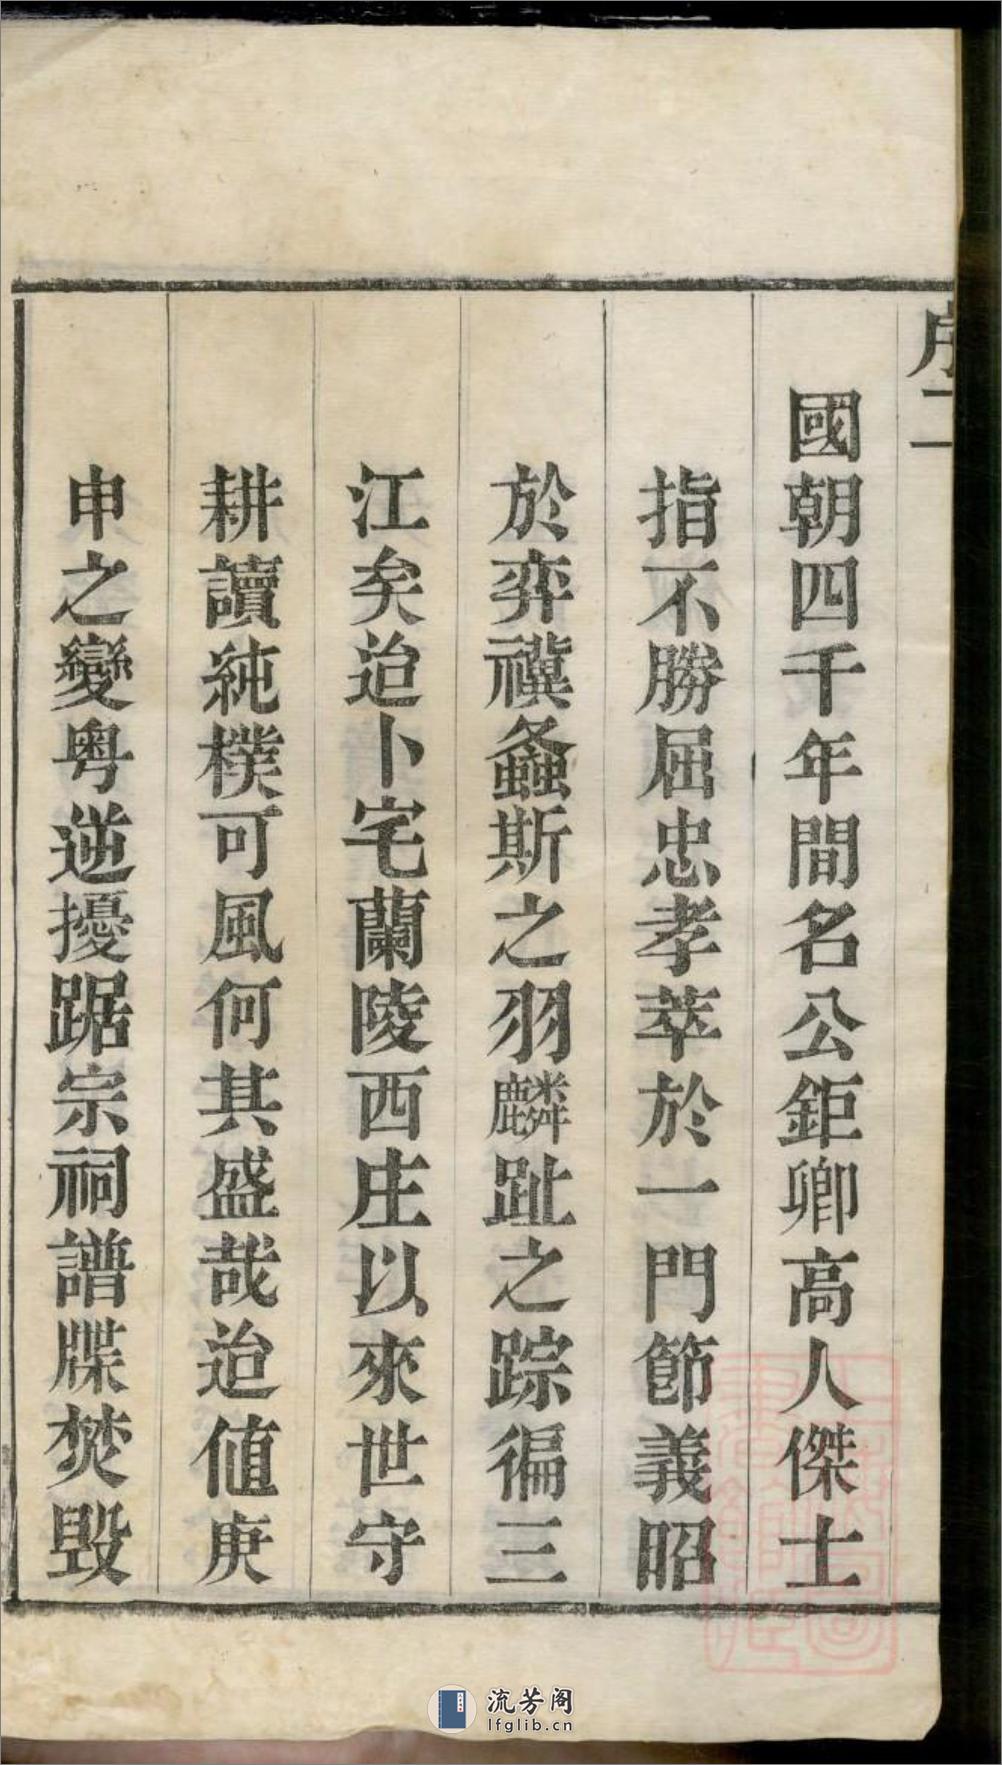 序二
國朝四千年間名公鉅卿高人傑士
指不勝屈忠孝萃於一門節義昭
於弈禩螽斯之羽麟趾之踪徧三
江矣迨卜宅蘭陵西庄以來世守
耕讀純樸可風何其盛哉迨値庚
申之變粤逆擾踞宗祠譜牒焚毀
流芳阁
lfglib.cn